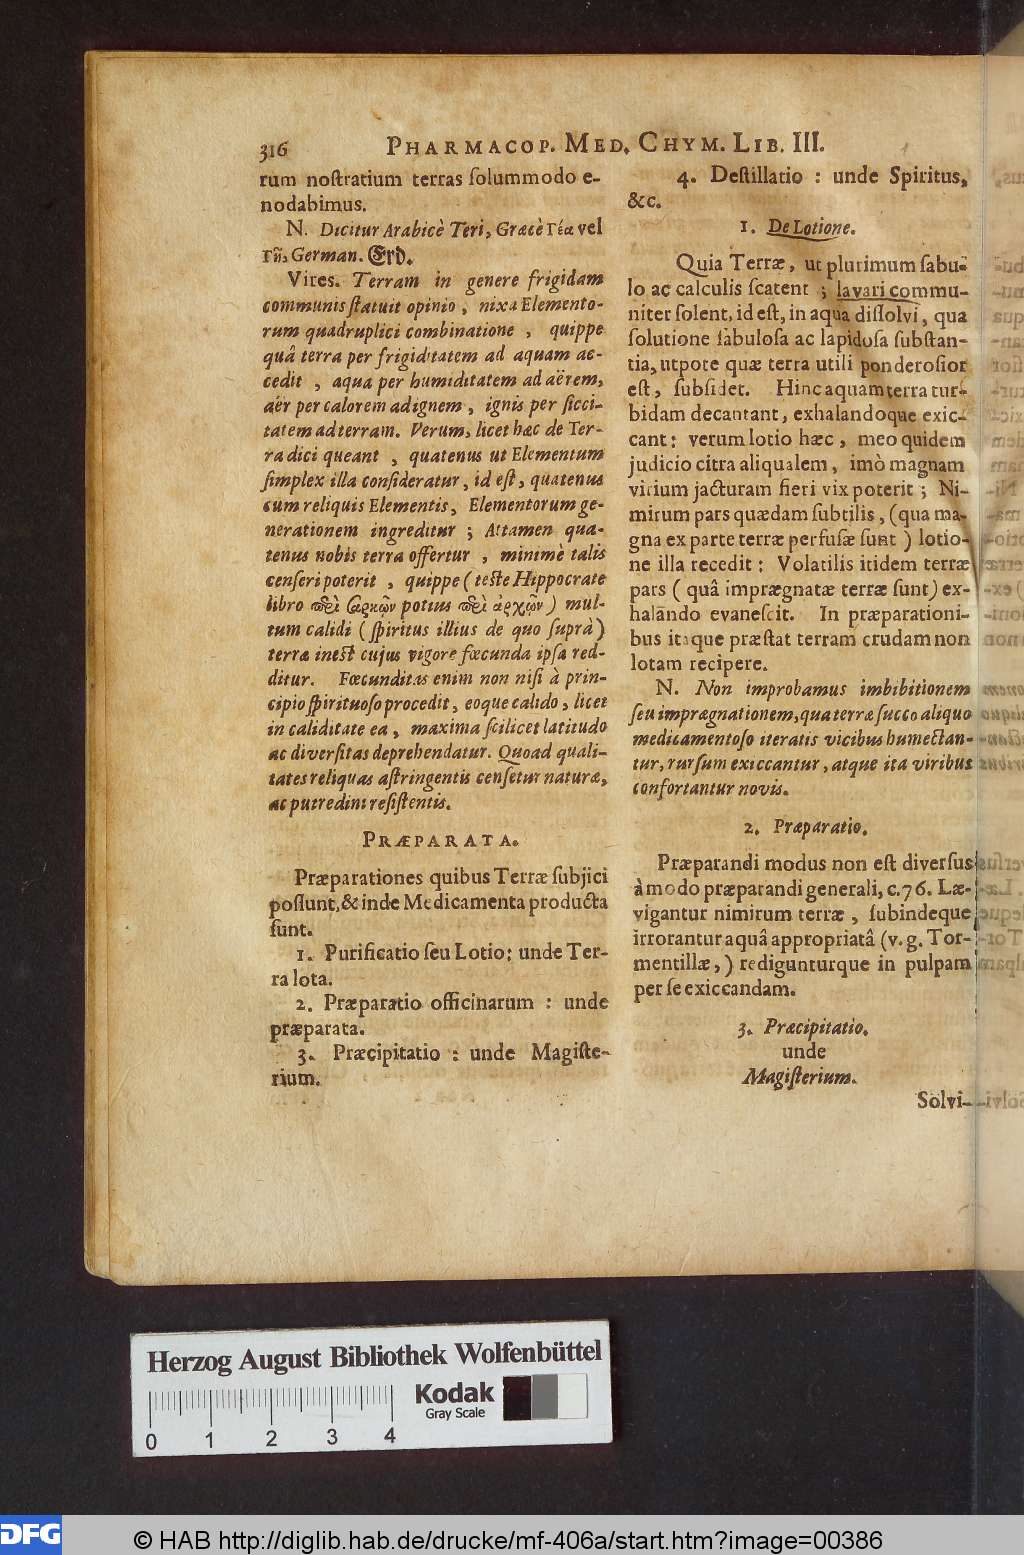 316
PHARMACOP. MED. CHYM. LIB. III.
rum noſtratium terras ſolummodo e-
nodabimus.
N. Dicitur Arabicè Teri, Græcè Γέα vel
Γῆ, German. Erd.
Vires. Terram in genere frigidam
communis ſtatuit opinio, nixa Elemento-
rum quadruplici combinatione, quippe
quâ terra per frigiditatem ad aquam ac-
cedit, aqua per humiditatem ad aërem,
aër per calorem ad ignem, ignis per ſicci-
tatem ad terram. Verum, licet hæc de Ter-
ra dici queant, quatenus ut Elementum
ſimplex illa conſideratur, id eſt, quatenus
cum reliquis Elementis, Elementorum ge-
nerationem ingreditur; Attamen qua-
tenus nobis terra offertur, minimè talis
cenſeri poterit, quippe (teſte Hippocrate
libro περὶ σαρκῶν potius περὶ ἀρχῶν) mul-
tum calidi (ſpiritus illius de quo ſuprà)
terræ ineſt cujus vigore fœcunda ipſa red-
ditur. Fœcunditas enim non niſi à prin-
cipio ſpirituoſo procedit, eoque calido, licet
in caliditate ea, maxima ſcilicet latitudo
ac diverſitas deprehendatur. Quoad quali-
tates reliquas aſtringentis cenſetur naturæ,
ac putredini reſiſtentis.
PRÆPARATA.
Præparationes quibus Terræ ſubjici
poſſunt, & inde Medicamenta producta
ſunt.
1. Purificatio ſeu Lotio; unde Ter-
ra lota.
2. Præparatio officinarum : unde
præparata.
3. Præcipitatio : unde Magiſte-
rium.
4. Deſtillatio : unde Spiritus,
&c.
1. De Lotione.
Quia Terræ, ut plurimum ſabu-
lo ac calculis ſcatent; lavari commu-
niter ſolent, id eſt, in aqua diſſolvi, qua
ſolutione ſabuloſa ac lapidoſa ſubſtan-
tia, utpote quæ terra utili ponderoſior
eſt, ſubſidet. Hinc aquam terra tur-
bidam decantant, exhalandoque exic-
cant: verum lotio hæc, meo quidem
judicio citra aliqualem, imò magnam
virium jacturam fieri vix poterit; Ni-
mirum pars quædam ſubtilis, (qua ma-
gna ex parte terræ perfuſæ ſunt) lotio-
ne illa recedit: Volatilis itidem terræ
pars (quâ imprægnatæ terræ ſunt) ex-
halando evaneſcit. In præparationi-
bus itaque præſtat terram crudam non
lotam recipere.
N. Non improbamus imbibitionem
ſeu imprægnationem, qua terræ ſucco aliquo
medicamentoſo iteratis vicibus humectan-
tur, rurſum exiccantur, atque ita viribus
confortantur novis.
2. Præparatio.
Præparandi modus non eſt diverſus
à modo præparandi generali, c. 76. Læ-
vigantur nimirum terræ, ſubindeque
irrorantur aquâ appropriatâ (v. g. Tor-
mentillæ,) redigunturque in pulpam
per ſe exiccandam.
3. Præcipitatio.
unde
Magiſterium.
Solvi-
Herzog August Bibliothek Wolfenbüttel
Kodak
Gray Scale
0 1 2 3 4
DFG
© HAB http://diglib.hab.de/drucke/mf-406a/start.htm?image=00386